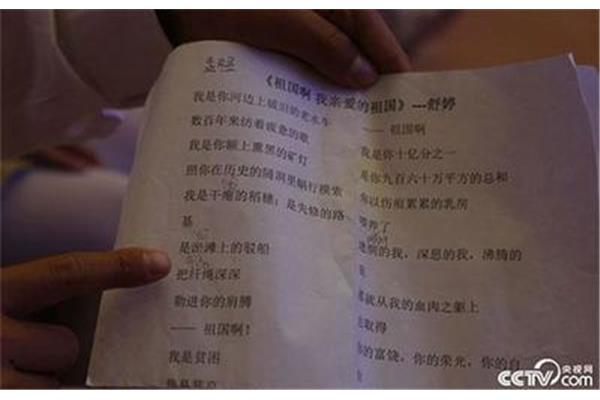 《祖国啊 我亲爱的祖国》---舒婷
我是你河边上破旧的老水车
数百年来纺着疲惫的歌
我是你额上熏黑的矿灯
照你在历史的隧洞里蜗行摸索
我是干瘪的稻穗;是失修的路
基
是淤滩上的驳船
把纤绳深深
勒进你的肩膊
—— 祖国啊!
我是贫困
—— 祖国啊
我是你十亿分之一
是你九百六十万平方的总和
你以伤痕累累的乳房
喂养了
的我,深思的我,沸腾的
我
那就从我的血肉之躯上
去取得
你的富饶,你的荣光,你的自
CCTV 央视网
com